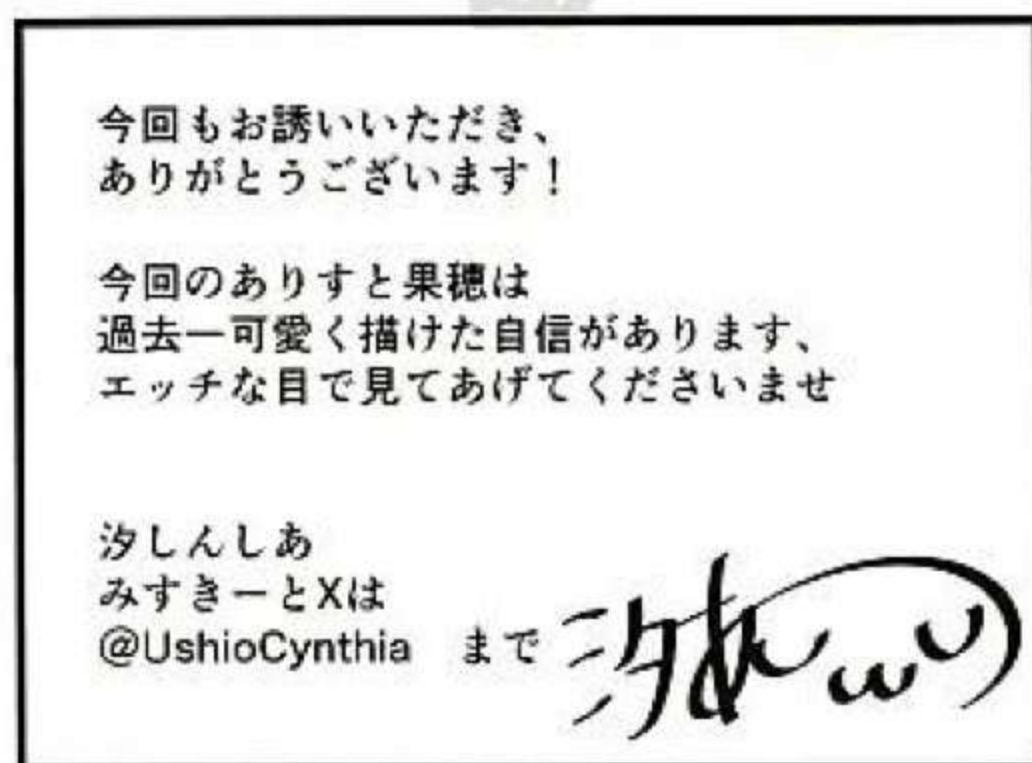 今回もお誘いいただき、
ありがとうございます！
今回のありすと果穂は
過去一可愛く描けた自信があります、
エッチな目で見てあげてくださいませ
汐しんしあ
みすきーとXは
@UshioCynthia まで